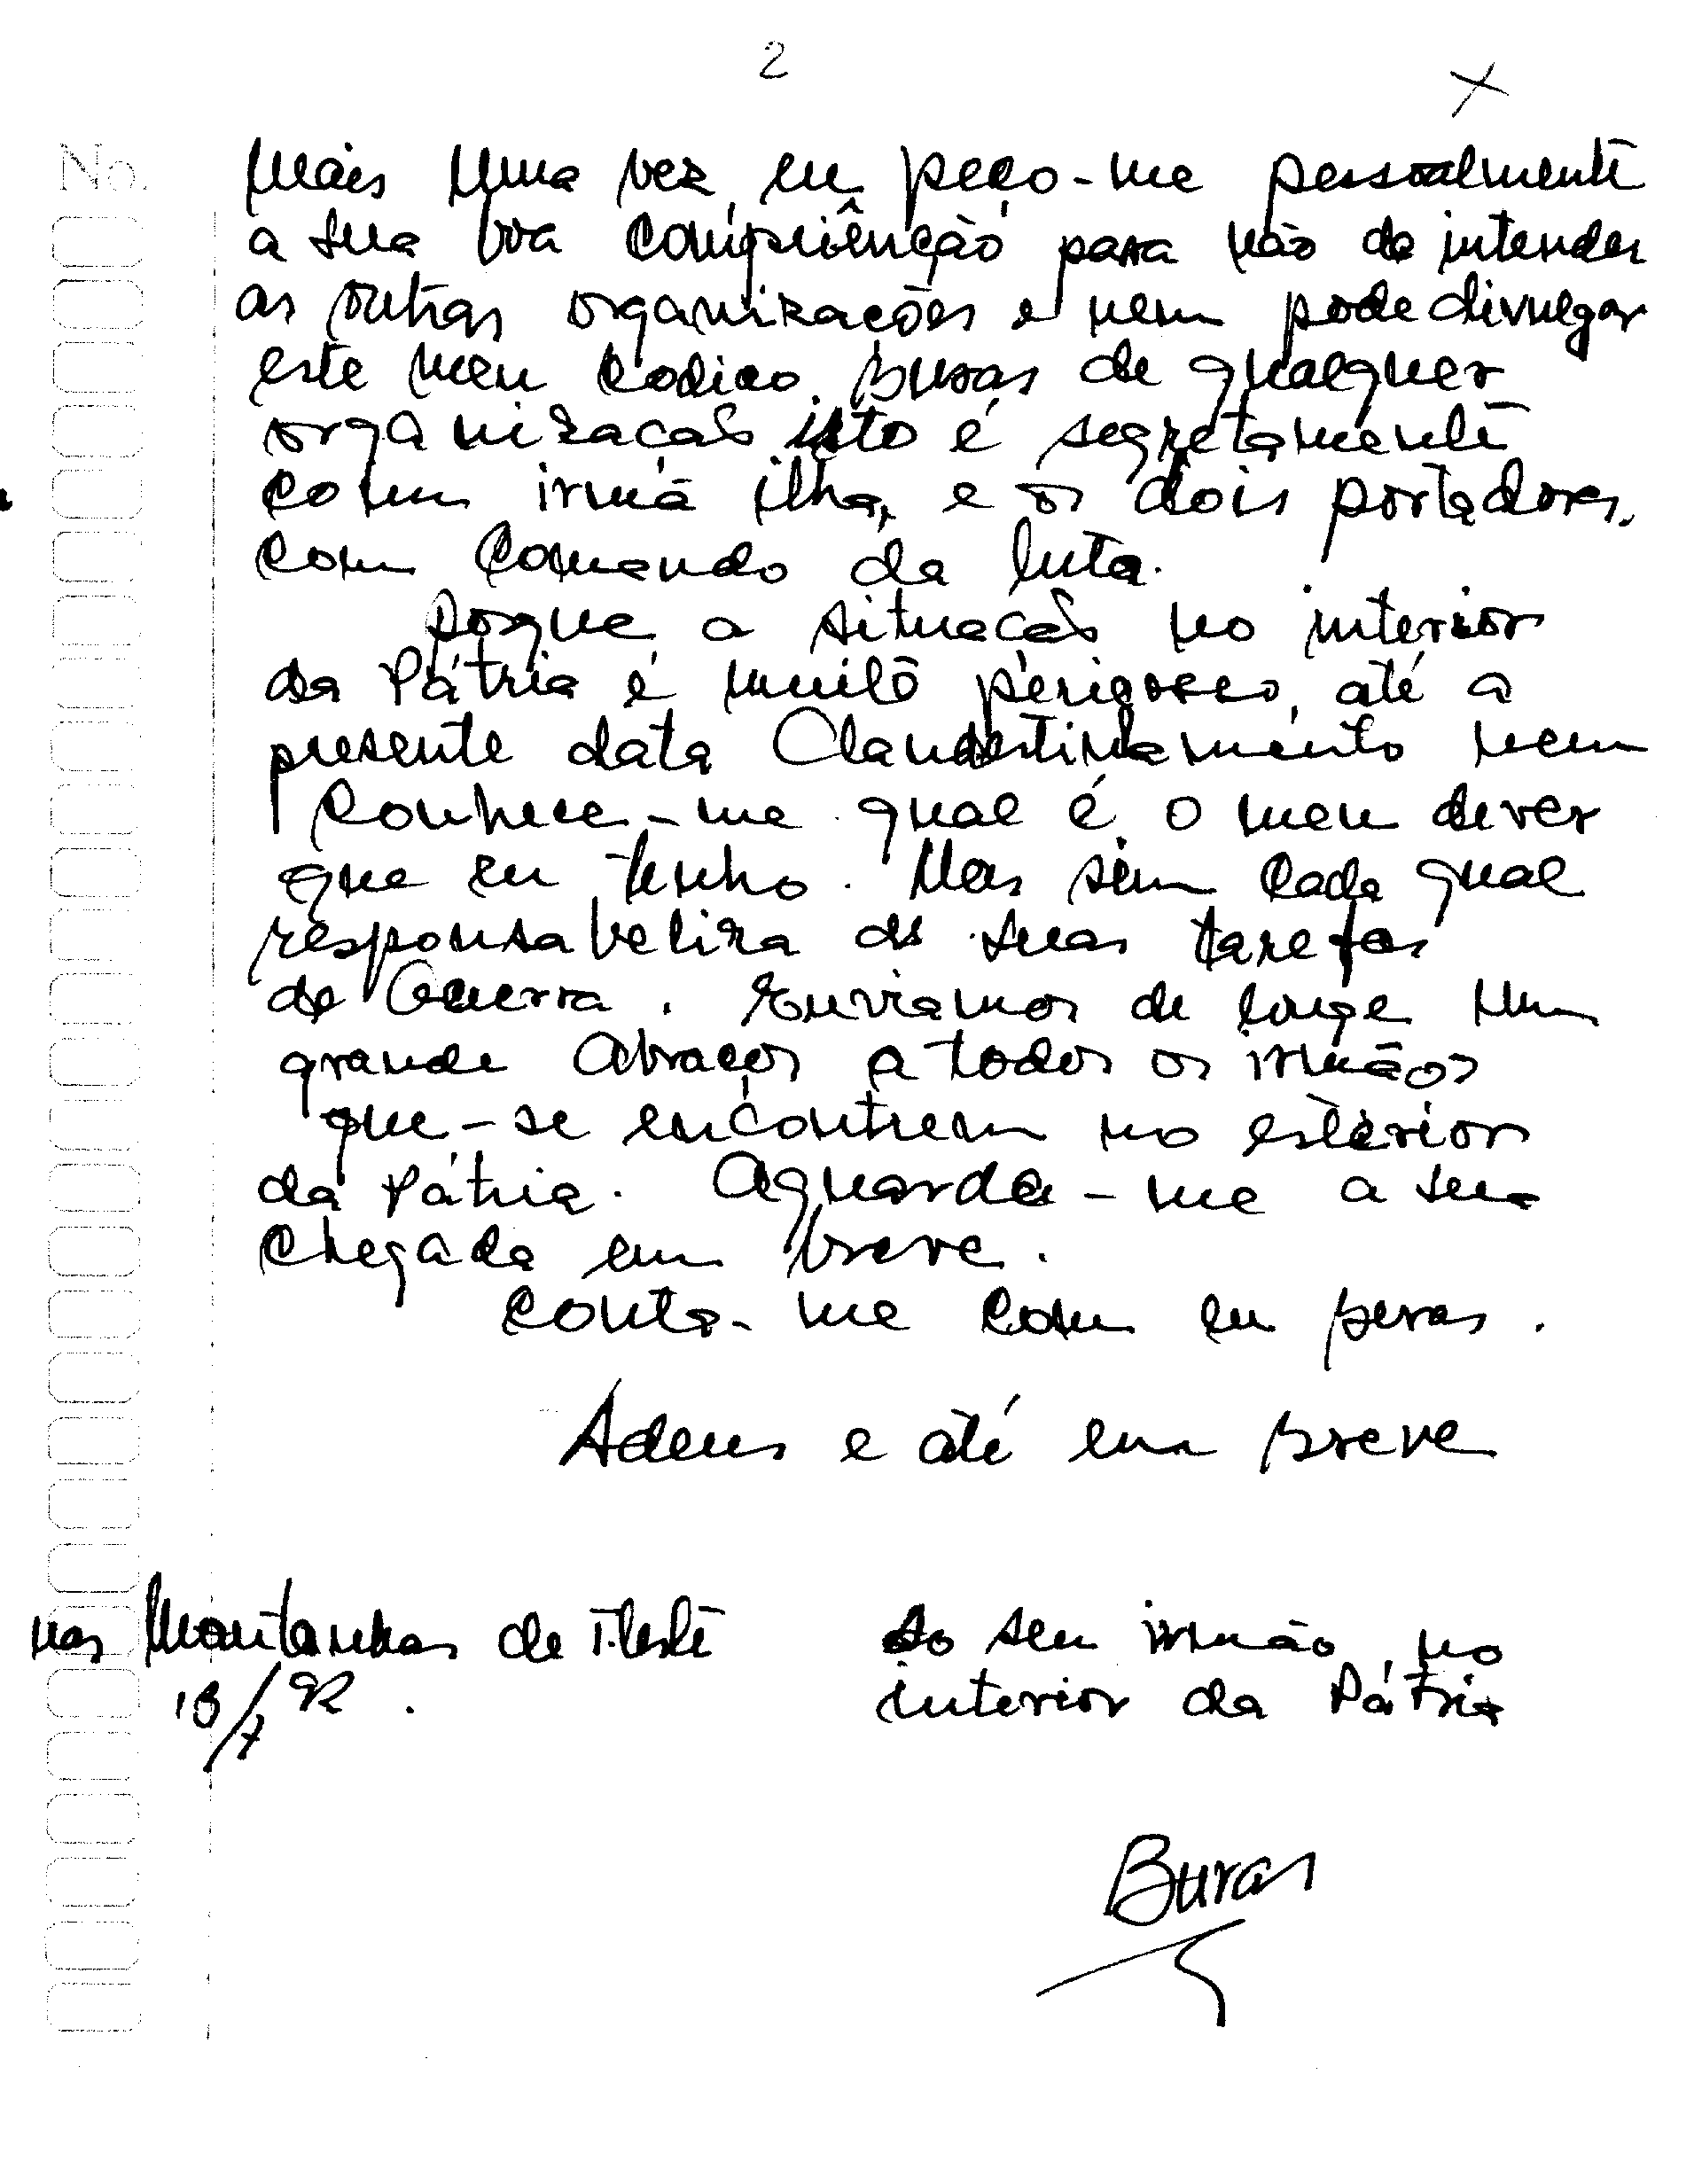 2
No.
Mais uma vez, eu peço-me pessoalmente
a sua boa compriênção para não de intender
as outras organizações e nem pode divulgar
este meu codico. Buras de qualquer
organizacaõ isto é segretamente
com irmã ilha, e os dois portadores.
com Comando da luta.
Porque a situacaõ no interior
da Pátria é muitō perigoso, até a
presente data Clandestinamento nem
Conhece-me qual é o meu dever
que eu tenho. Mas sim cada qual
responsabeliza as suas tarefas
de Guerra. Enviamos de longe um
grande abraços a todos os irmãos
que-se encontrem no estèrior
da Pátria. Aguarda-me a sua
Chegada em breve.
Conta-me com eu beras.
Adeus e até em breve
nas Montanhas de T.leste
18/7 92.
do seu irmão, no
interior da Pátria
Buras